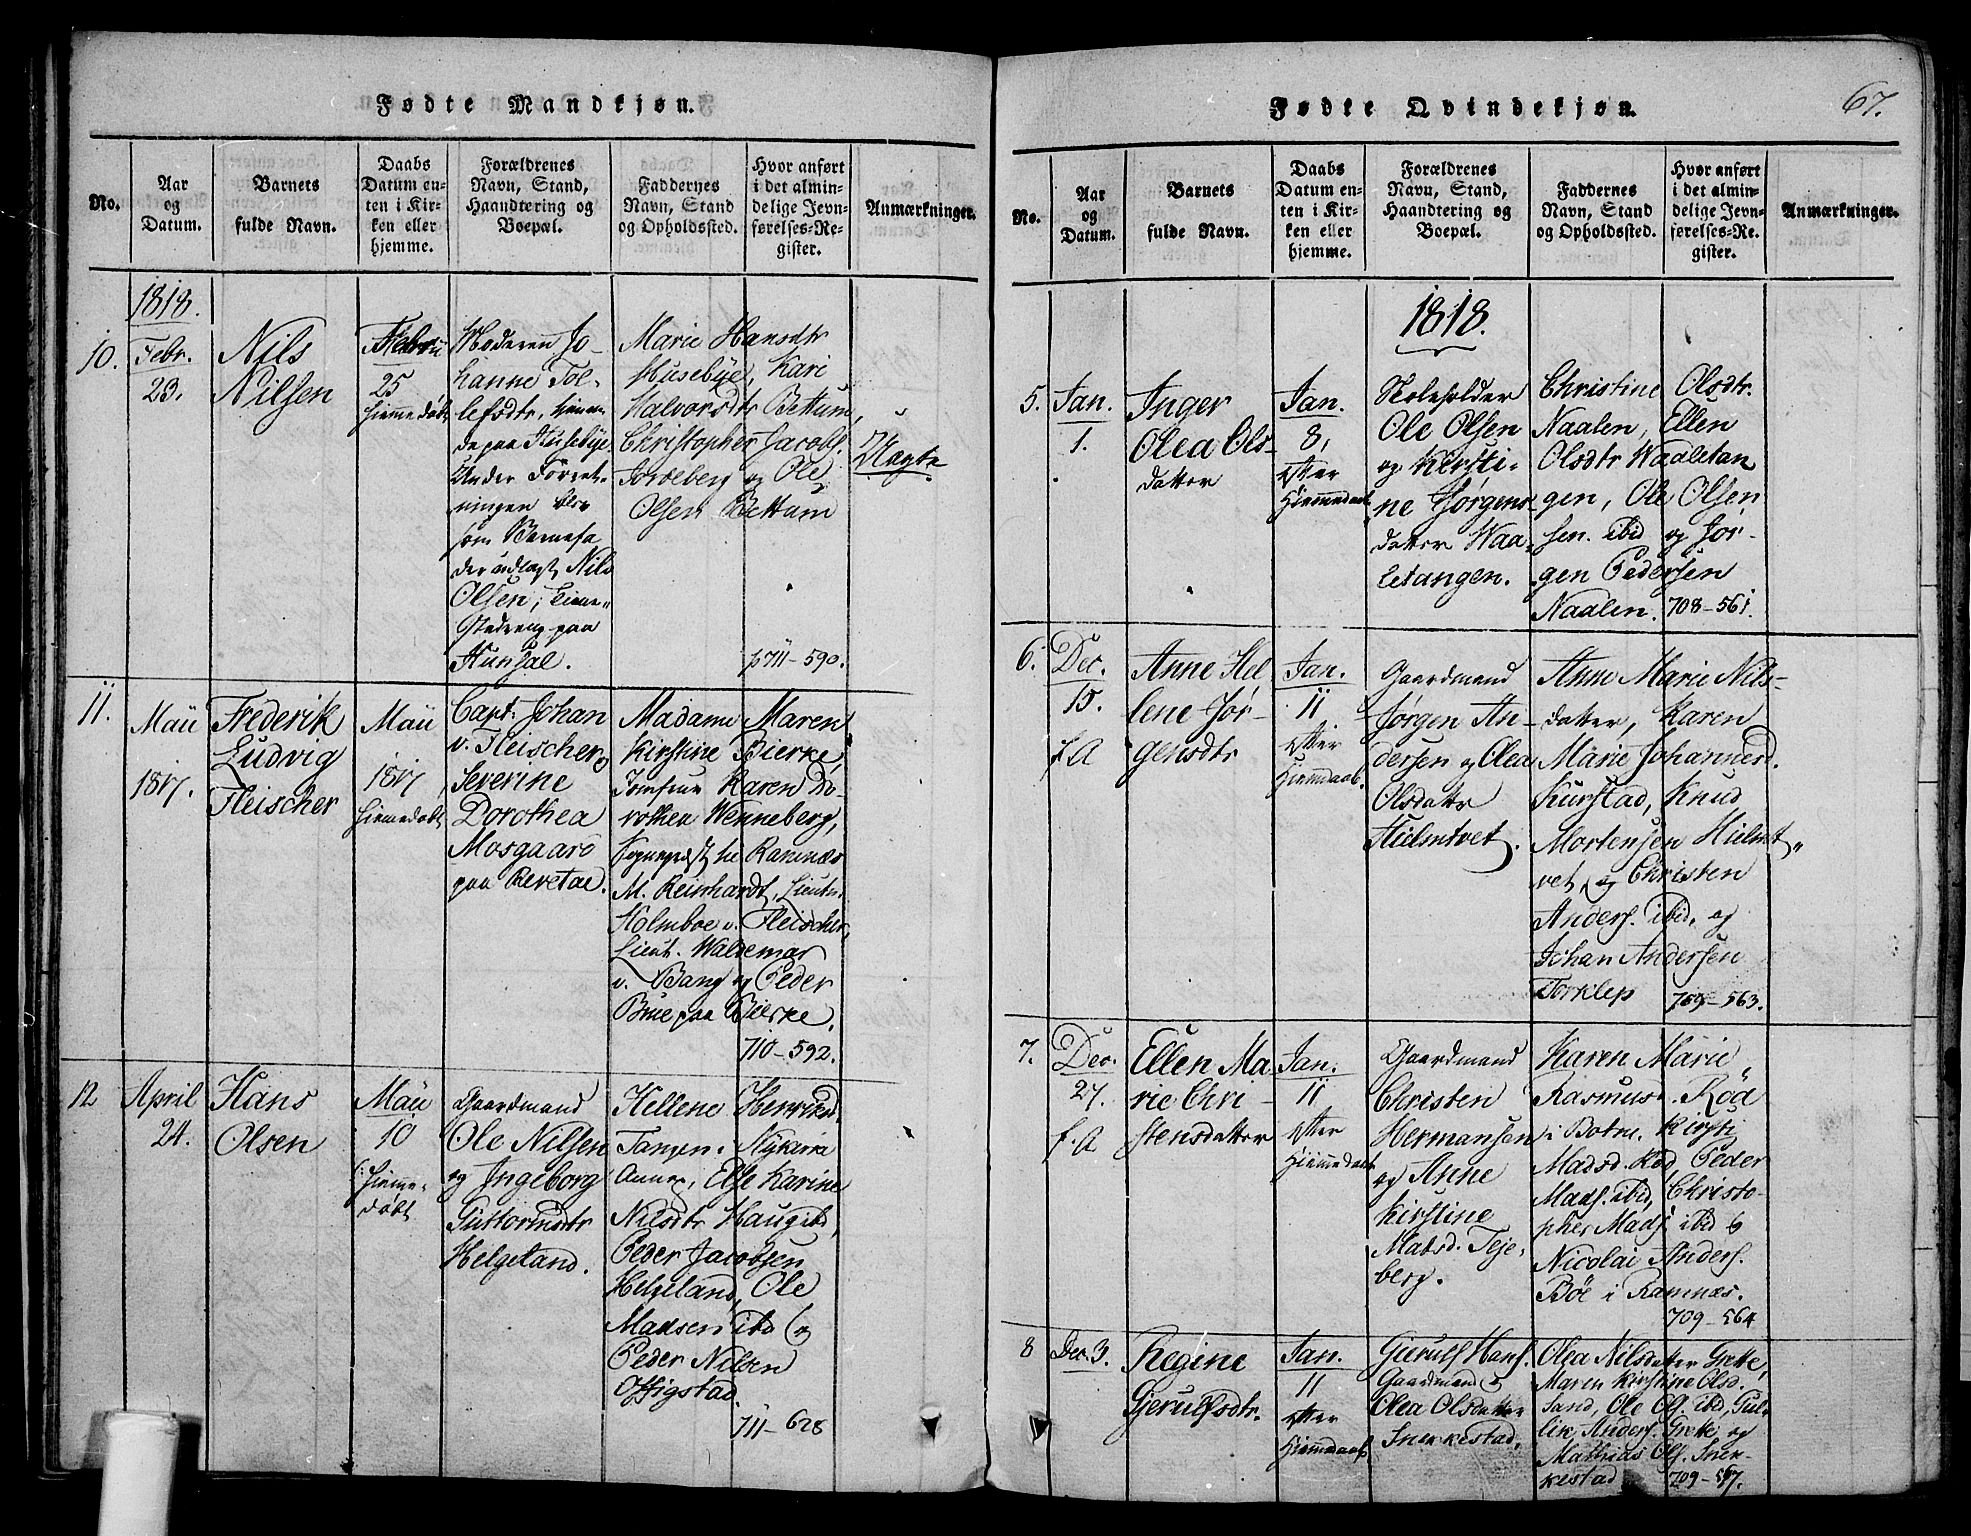 Fødte Mandkjøn.
No.
Aar
og
Datum.
Barnets
fulde Navn.
Daabs
Datum en-
ten i Kir-
ken eller
hjemme.
Forældrenes
Navn, Stand,
Haandtering og
Boepæl.
Faddernes
Navn, Stand
og Opholdssted.
Hvor anført
i det almin-
delige Jevn-
førelses-Re-
gister.
Anmærkninger.
1818.
10.
Febr.
23.
Nils
Nilsen
25
hiemedøbt
Moderen Jo-
hanne Tol-
lefsdtr,
de paa Husebye.
Under Forret-
ningen blev
som Barnefa-
der udlagt Nils
Olsen,
paa
Marie Hansdtr
Husebye, Kari
Halvorsdtr Bettum,
Christopher Jacobs.
og Ole
Olsen Bettum
p 711-590.
Uægte
11.
Maii
1817.
Frederik
Ludvig
Fleischer
Maii
1817
hiemedøbt
Capt. Johan
v. Fleischer og
Severine
Dorothea
Mosgaard
paa Revetal.
Madame Maren
Kirstine Bierke,
Jomfrue Karen Do-
rothea Wenneberg,
Sognepræst til Ramnæs
M. Reinhardt, Lieutn.
Holmboe v. Fleischer,
Lieut. Waldemar
v. Bang og Peder
Brue paa Bierke.
710-592.
12
April
24.
Hans
Olsen
Maii
10
hieme-
døbt
Gaardmand
Ole Nilsen
og Ingeborg
Guttormsdtr
Helgeland.
Hellene Henriksd.
Tangen.
Else Karine
Nilsdtr Haugibd,
Peder Jacobsen
Helgeland, Ole
Madsen ibd og
Peder Nilsen
711-628
Fødte Qvindekjøn.
67.
No.
Aar
og
Datum.
Barnets
fulde Navn.
Daabs
Datum en-
ten i Kir-
ken eller
hjemme.
Forældrenes
Navn, Stand,
Haandtering og
Boepæl.
Faddernes
Navn, Stand
og Opholdssted.
Hvor anført
i det almin-
delige Jevn-
førelses-Re-
gister.
Anmærkninger.
1818.
5.
Jan.
1.
Inger
Olea Ols-
datter
Jan.
8,
efter
Hiemmedaab
Skoleholder
Ole Olsen
og Kirsti-
ne Jørgens-
datter Waa-
letangen.
Christine Olsdtr.
Naalen, Ellen
Olsdtr Waaletan
gen, Ole Olsen
sen. ibid og Jør-
gen Pedersen
Naalen. 708-561.
6.
Dec.
15.
f. A
Anne Hel
lene Jør-
gensdtr
Jan.
11
efter
Hiemdaab.
Gaardmand
Jørgen An-
dersen og Olea
Olsdattr
Hielmtvet.
Ann Marie Nils-
datter, Karen
Marie Johannesd.
Kurstad, Knud
Mortensen Hielmt-
vet, og Christen
Anders. ibid, og
Johan Andersen
Torklep 709-563.
7.
Dec.
27.
f. A
Ellen Ma
rie Chri-
stensdatter
Jan.
11
efter
Hiemmedaab
Gaardmand
Christen
Hermansen
og Anne
Kirstine
Madsd. Teje-
berg.
Karen Marie
Rasmusd. Rød
i Botne. Kirsti
Madsd. Rød, Peder
Mads. ibid, Christo-
pher Mads. ibid og
Nicolai Anders.
Bøe i Ramnæs.
709-564
8
Dec. 3.
Regine
Gjerulfsdtr.
Jan.
11
efter
Hiemmedaab.
Gierulf Hans.
Gaardmand og
Olea Olsdatter
Snerkestad.
Olea Nilsdatter Grette,
Maren Kirstine Olsd.
Sand, Ole Ol. ibid, Gul-
lik Anders. Grette og
Mathias Ols. Sner-
kestad 709-567.